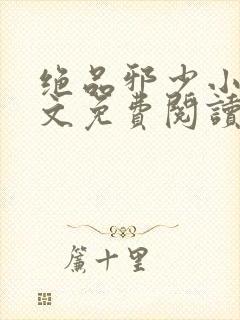 绝品邪少小
文免费閱讀
簾十里